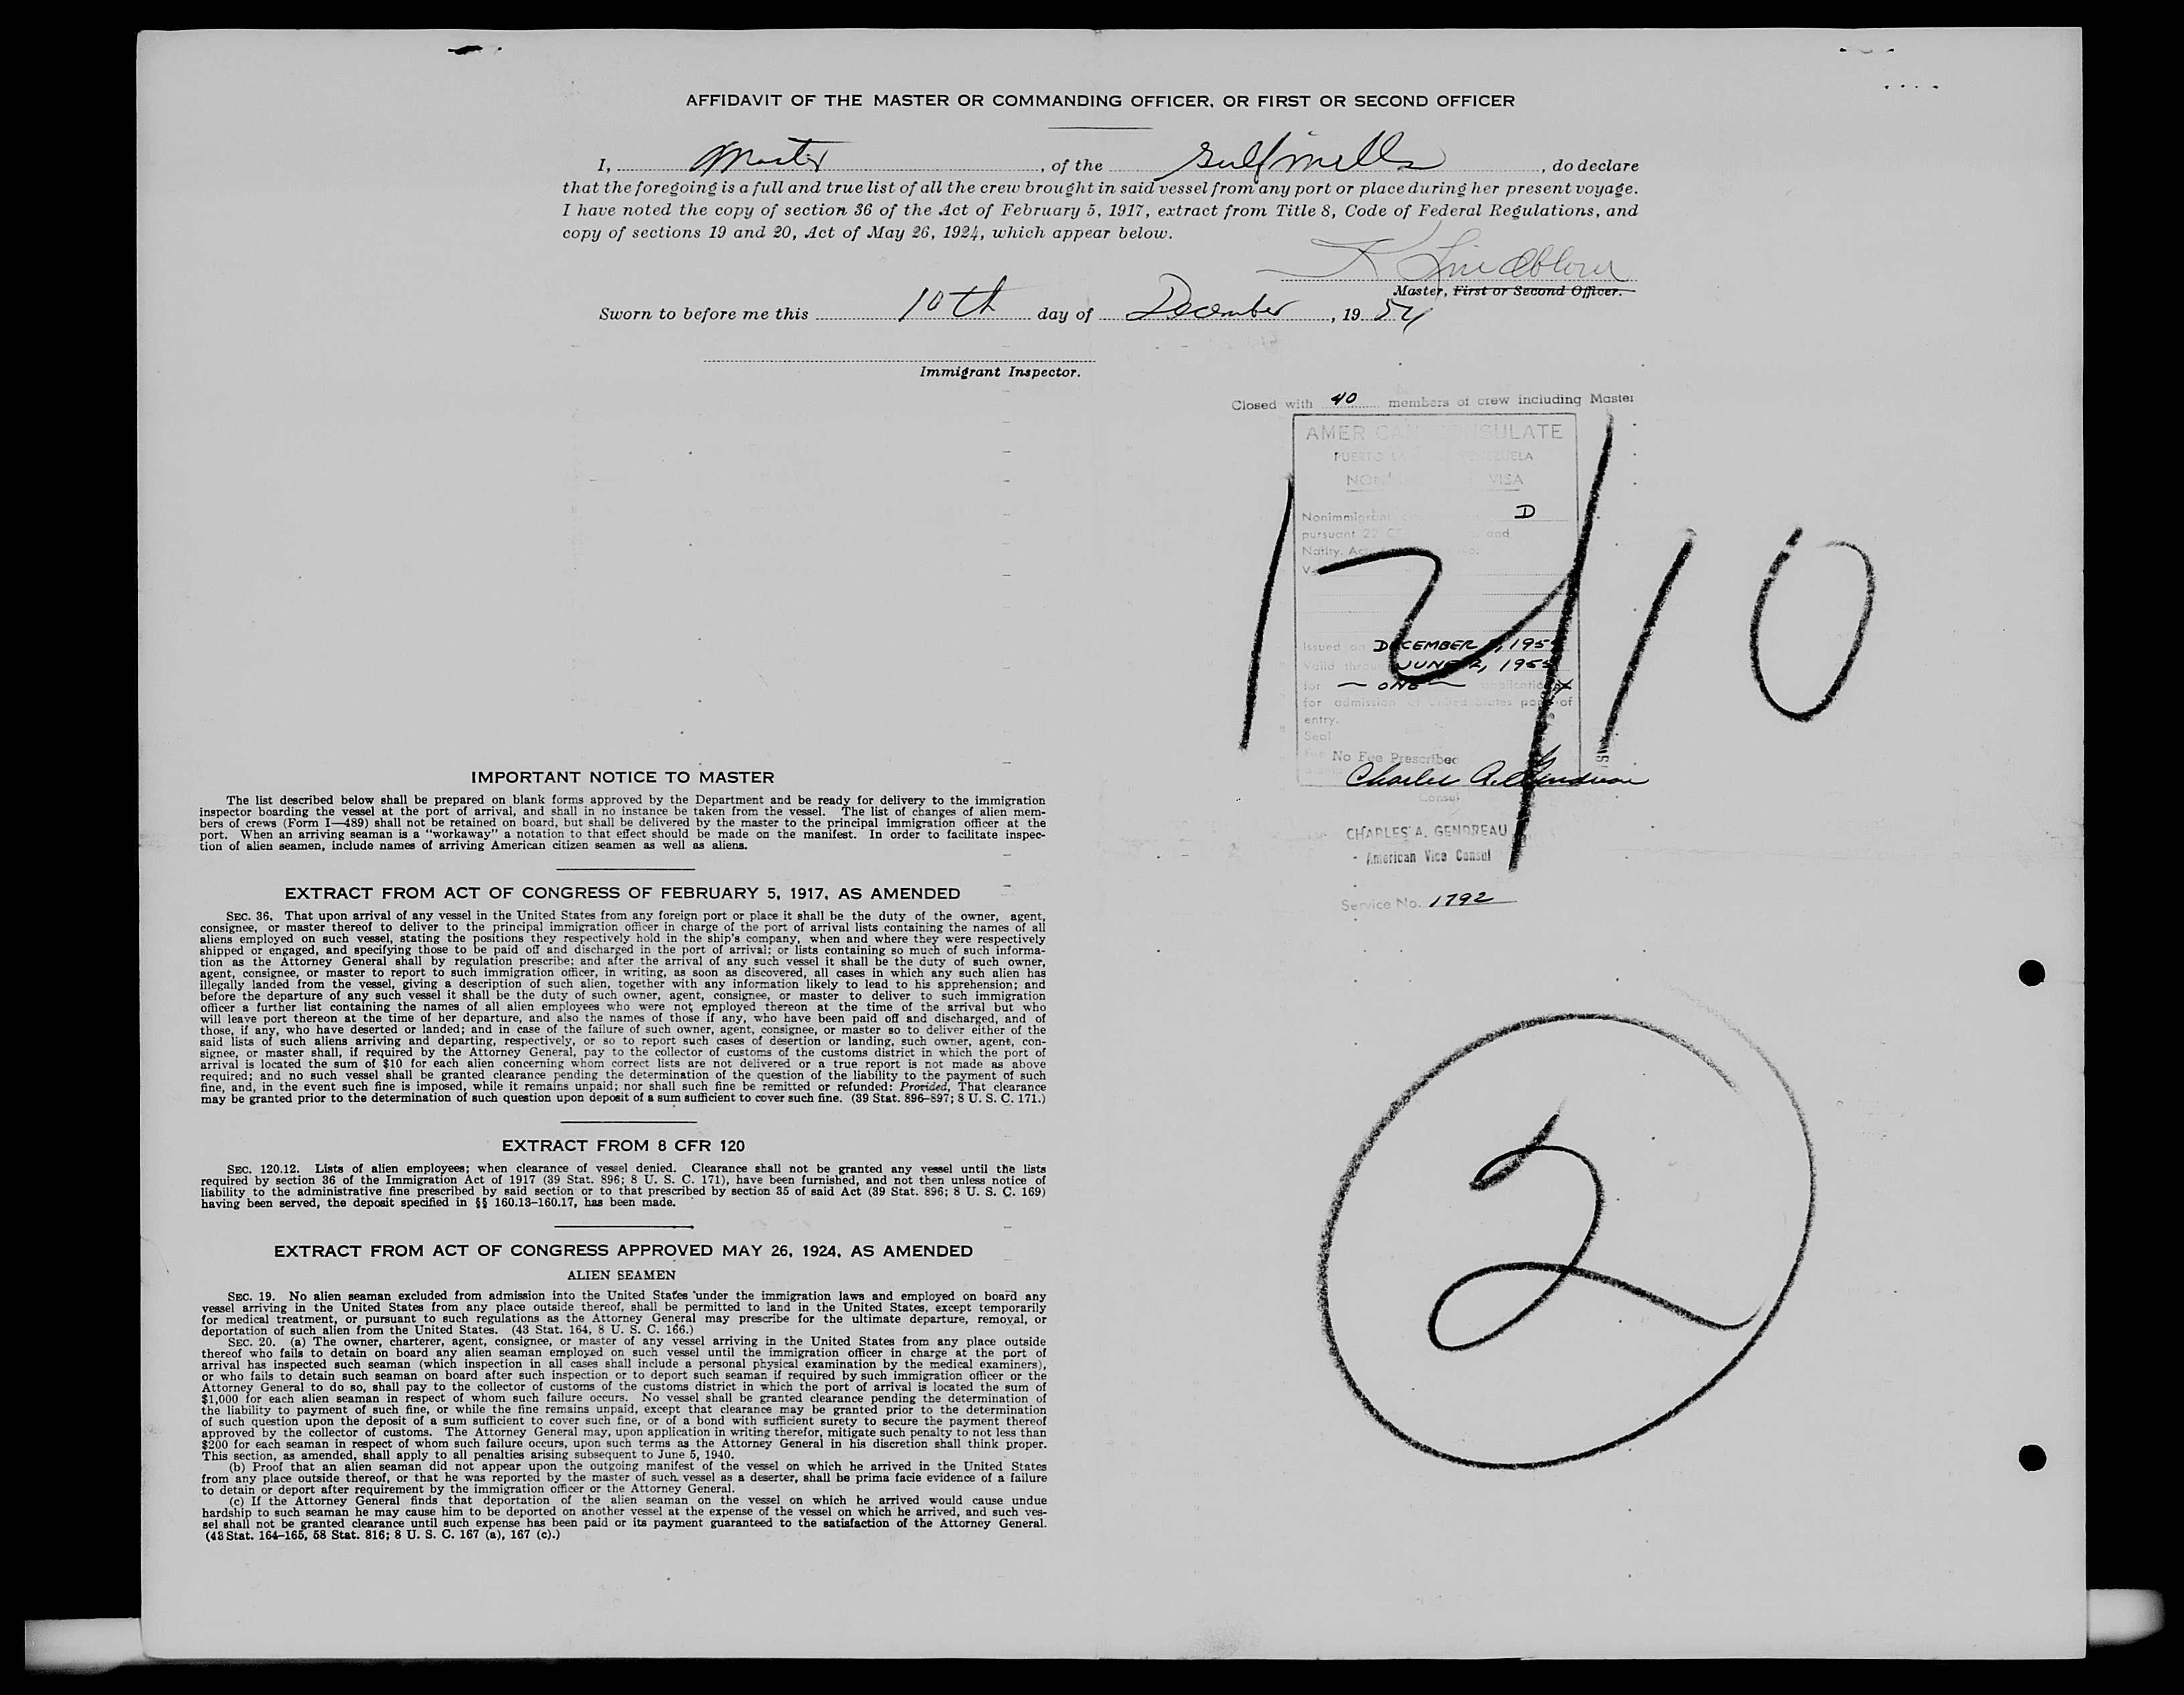 AFFIDAVIT OF THE MASTER OR COMMANDING OFFICER, OR FIRST OR SECOND OFFICER
I, Master, of the Gulfmills, do declare
that the foregoing is a full and true list of all the crew brought in said vessel from any port or place during her present voyage.
I have noted the copy of section 36 of the Act of February 5, 1917, extract from Title 8, Code of Federal Regulations, and
copy of sections 19 and 20, Act of May 26, 1924, which appear below.
K Lindblom
Master, First or Second Officer.
Sworn to before me this 10th day of December, 1954
Immigrant Inspector.
Closed with 40 members of crew including Master
AMERICAN CONSULATE
PUERTO LA VENEZUELA
NON VISA
Nonimmigrant D
pursuant 22 and
Natlty. Act
12/10
Issued on DECEMBER , 195
Valid JUNE 2, 195
for — ONE — application
for admission at United States port of
entry.
Seal
No Fee Prescribed
Charles A. Gendreau
Consul
CHARLES A. GENDREAU
American Vice Consul
Service No. 1792
2
IMPORTANT NOTICE TO MASTER
The list described below shall be prepared on blank forms approved by the Department and be ready for delivery to the immigration
inspector boarding the vessel at the port of arrival, and shall in no instance be taken from the vessel. The list of changes of alien mem-
bers of crews (Form I—489) shall not be retained on board, but shall be delivered by the master to the principal immigration officer at the
port. When an arriving seaman is a "workaway" a notation to that effect should be made on the manifest. In order to facilitate inspec-
tion of alien seamen, include names of arriving American citizen seamen as well as aliens.
EXTRACT FROM ACT OF CONGRESS OF FEBRUARY 5, 1917, AS AMENDED
SEC. 36. That upon arrival of any vessel in the United States from any foreign port or place it shall be the duty of the owner, agent,
consignee, or master thereof to deliver to the principal immigration officer in charge of the port of arrival lists containing the names of all
aliens employed on such vessel, stating the positions they respectively hold in the ship's company, when and where they were respectively
shipped or engaged, and specifying those to be paid off and discharged in the port of arrival; or lists containing so much of such informa-
tion as the Attorney General shall by regulation prescribe; and after the arrival of any such vessel it shall be the duty of such owner,
agent, consignee, or master to report to such immigration officer, in writing, as soon as discovered, all cases in which any such alien has
illegally landed from the vessel, giving a description of such alien, together with any information likely to lead to his apprehension; and
before the departure of any such vessel it shall be the duty of such owner, agent, consignee, or master to deliver to such immigration
officer a further list containing the names of all alien employees who were not employed thereon at the time of the arrival but who
will leave port thereon at the time of her departure, and also the names of those if any, who have been paid off and discharged, and of
those, if any, who have deserted or landed; and in case of the failure of such owner, agent, consignee, or master so to deliver either of the
said lists of such aliens arriving and departing, respectively, or so to report such cases of desertion or landing, such owner, agent, con-
signee, or master shall, if required by the Attorney General, pay to the collector of customs of the customs district in which the port of
arrival is located the sum of $10 for each alien concerning whom correct lists are not delivered or a true report is not made as above
required; and no such vessel shall be granted clearance pending the determination of the question of the liability to the payment of such
fine, and, in the event such fine is imposed, while it remains unpaid; nor shall such fine be remitted or refunded: Provided, That clearance
may be granted prior to the determination of such question upon deposit of a sum sufficient to cover such fine. (39 Stat. 896–897; 8 U. S. C. 171.)
EXTRACT FROM 8 CFR 120
SEC. 120.12. Lists of alien employees; when clearance of vessel denied. Clearance shall not be granted any vessel until the lists
required by section 36 of the Immigration Act of 1917 (39 Stat. 896; 8 U. S. C. 171), have been furnished, and not then unless notice of
liability to the administrative fine prescribed by said section or to that prescribed by section 35 of said Act (39 Stat. 896; 8 U. S. C. 169)
having been served, the deposit specified in §§ 160.13–160.17, has been made.
EXTRACT FROM ACT OF CONGRESS APPROVED MAY 26, 1924, AS AMENDED
ALIEN SEAMEN
SEC. 19. No alien seaman excluded from admission into the United States under the immigration laws and employed on board any
vessel arriving in the United States from any place outside thereof, shall be permitted to land in the United States, except temporarily
for medical treatment, or pursuant to such regulations as the Attorney General may prescribe for the ultimate departure, removal, or
deportation of such alien from the United States. (43 Stat. 164, 8 U. S. C. 166.)
SEC. 20. (a) The owner, charterer, agent, consignee, or master of any vessel arriving in the United States from any place outside
thereof who fails to detain on board any alien seaman employed on such vessel until the immigration officer in charge at the port of
arrival has inspected such seaman (which inspection in all cases shall include a personal physical examination by the medical examiners),
or who fails to detain such seaman on board after such inspection or to deport such seaman if required by such immigration officer or the
Attorney General to do so, shall pay to the collector of customs of the customs district in which the port of arrival is located the sum of
$1,000 for each alien seaman in respect of whom such failure occurs. No vessel shall be granted clearance pending the determination of
the liability to payment of such fine, or while the fine remains unpaid, except that clearance may be granted prior to the determination
of such question upon the deposit of a sum sufficient to cover such fine, or of a bond with sufficient surety to secure the payment thereof
approved by the collector of customs. The Attorney General may, upon application in writing therefor, mitigate such penalty to not less than
$200 for each seaman in respect of whom such failure occurs, upon such terms as the Attorney General in his discretion shall think proper.
This section, as amended, shall apply to all penalties arising subsequent to June 5, 1940.
(b) Proof that an alien seaman did not appear upon the outgoing manifest of the vessel on which he arrived in the United States
from any place outside thereof, or that he was reported by the master of such vessel as a deserter, shall be prima facie evidence of a failure
to detain or deport after requirement by the immigration officer or the Attorney General.
(c) If the Attorney General finds that deportation of the alien seaman on the vessel on which he arrived would cause undue
hardship to such seaman he may cause him to be deported on another vessel at the expense of the vessel on which he arrived, and such ves-
sel shall not be granted clearance until such expense has been paid or its payment guaranteed to the satisfaction of the Attorney General.
(43 Stat. 164–165, 58 Stat. 816; 8 U. S. C. 167 (a), 167 (c).)